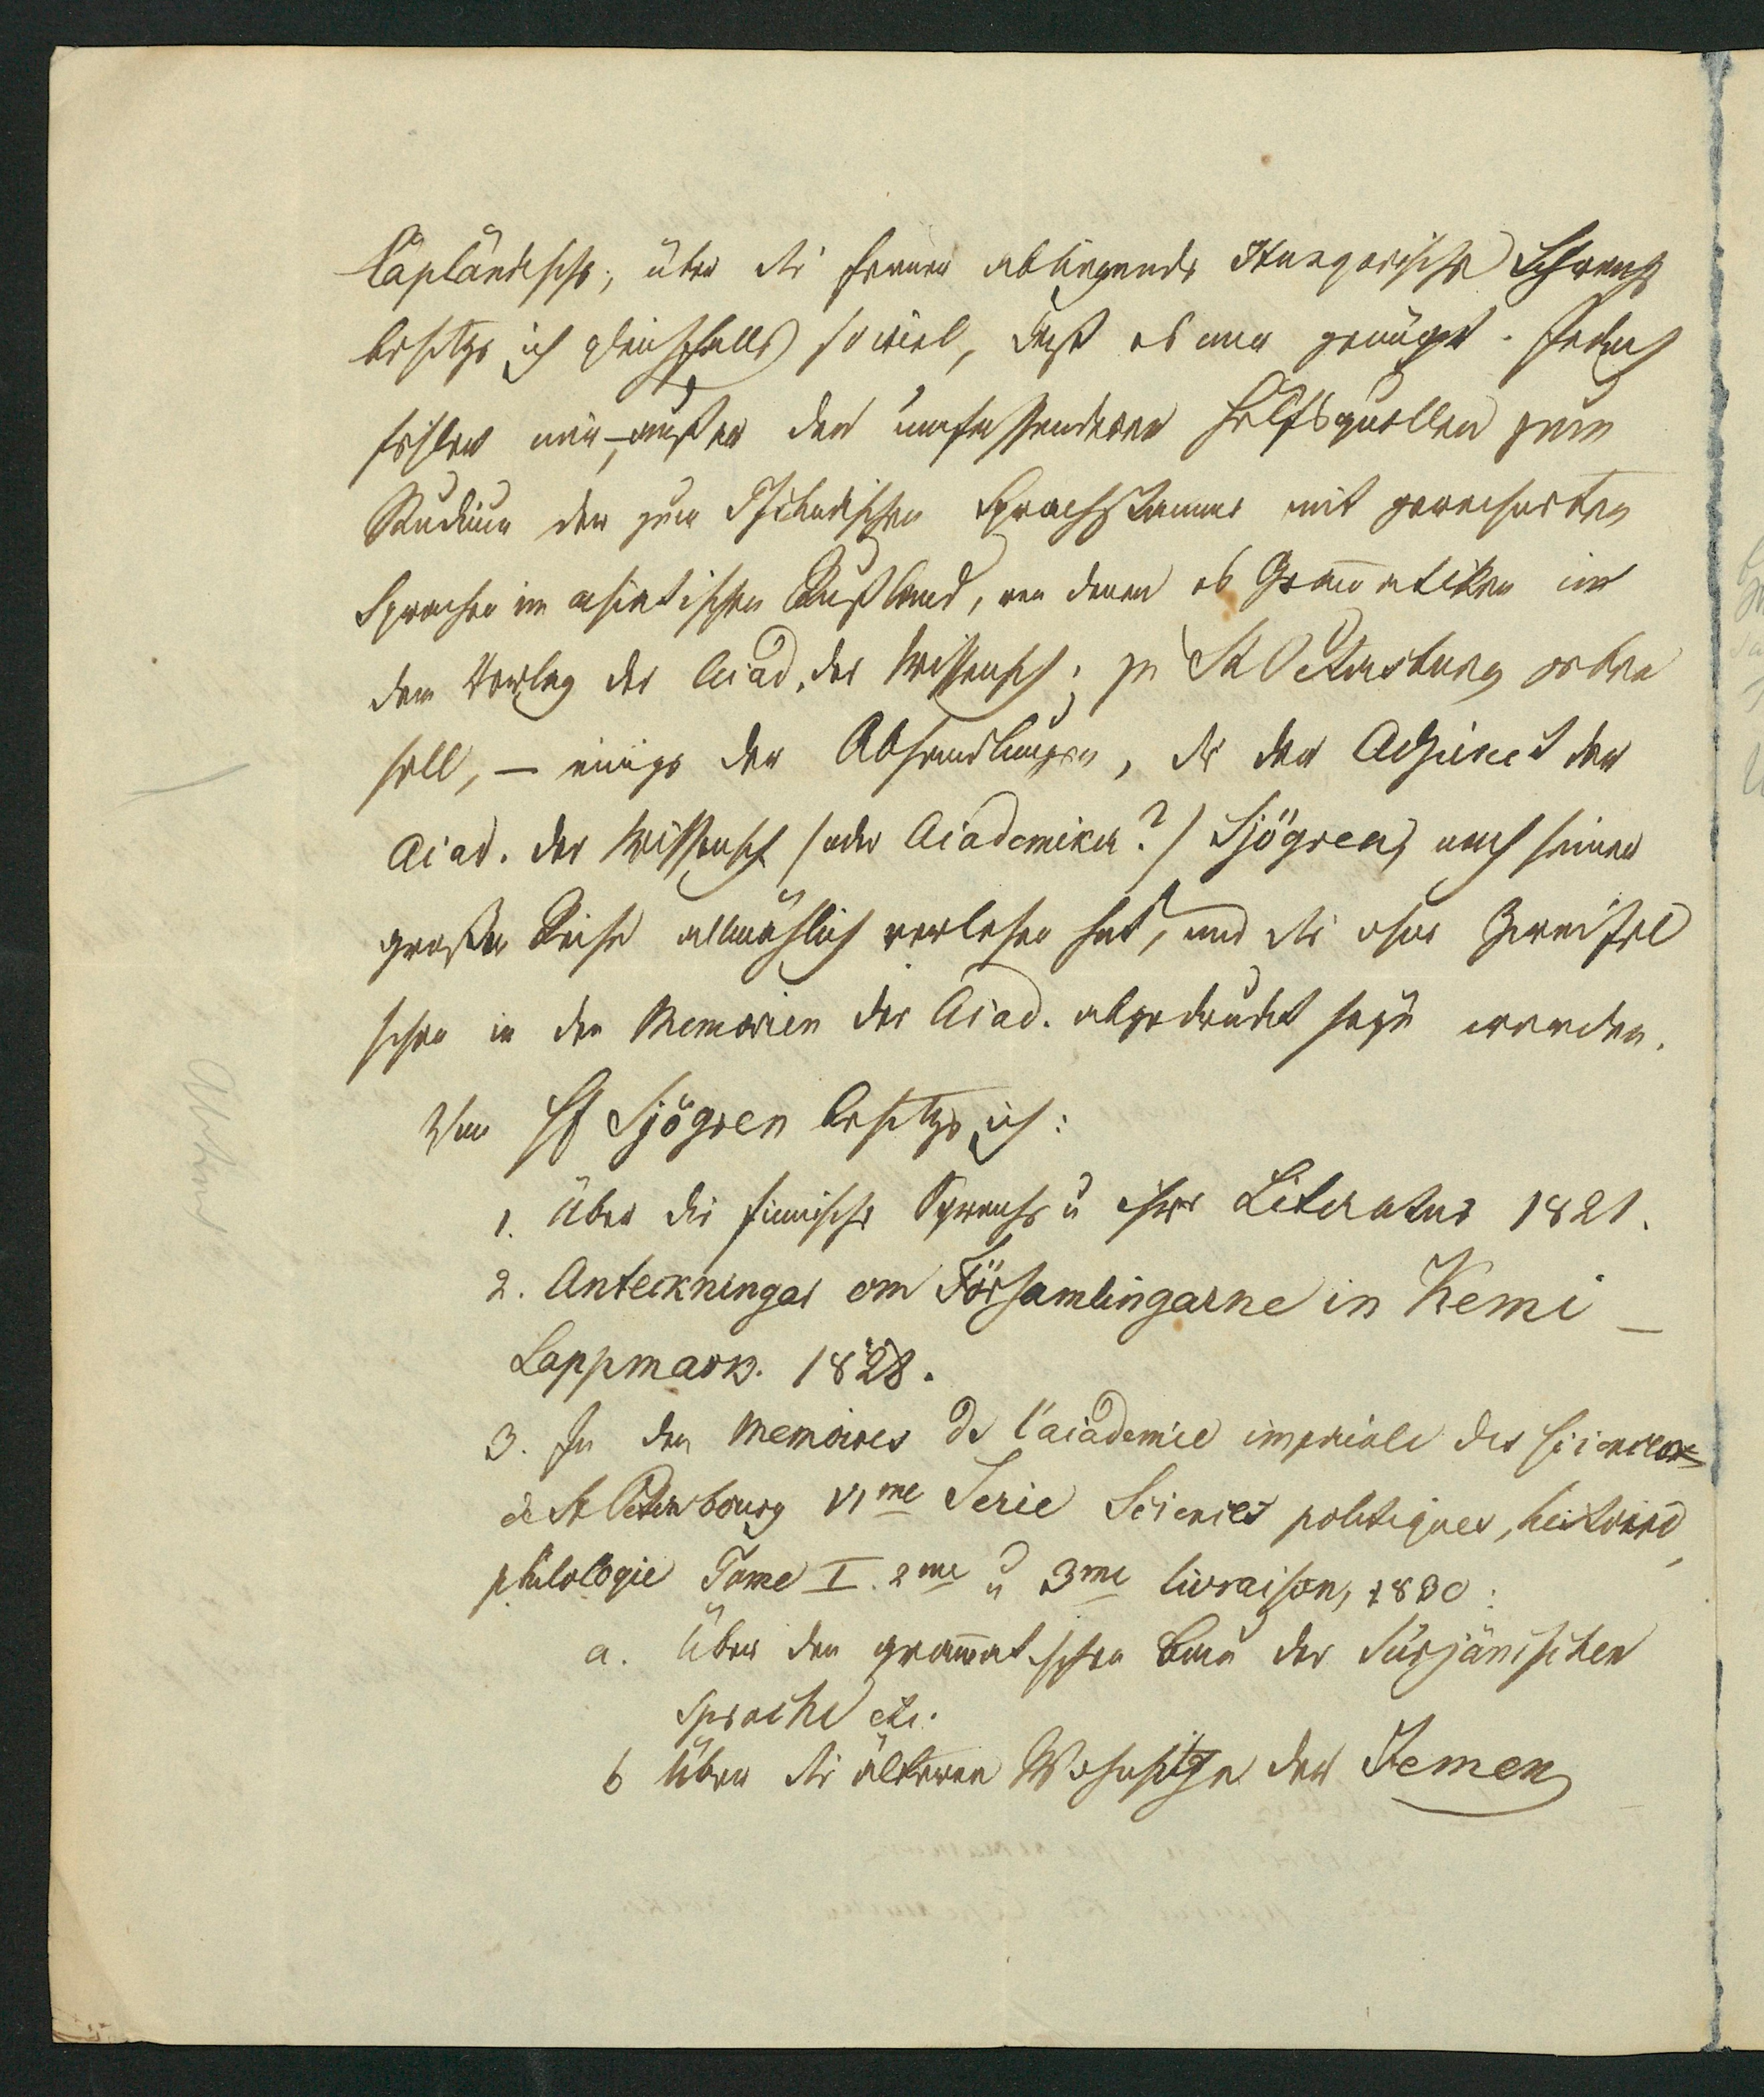 Lapländische, über die ferner abliegende Hungarische Sprache
besitze ich gleichfalls soviel, daß es mir genügt. Jedoch
fehlen mir, außer den umfassenderen Hülfsquellen zum
Studium der zum Tschudischen Sprachstamme mit gerechneten
Sprachen im asiatischen Rußland, von denen es Gram̄atiken in
dem Verlag der Acad. der Wissensch. zu St Petersburg geben
soll, — einige der Abhandlungen, die der Adjunct der
Acad. der Wissensch (oder Academiker?) Sjögren, nach seiner
großen Reise allmählich verlesen hat, und die ohne Zweifel
schon in den Memoiren der Acad. abgedruckt seyn werden.
Von H Sjögren besitze ich:
1. Über die finnische Sprache u ihre Literatur 1821.
2. Anteckningar om Församlingarne in Kemi –
Lappmark. 1828.
3. In den Memoires de l'academie imperiale des sciences
de St Petersbourg VIme Serie Sciences politiques, histoire,
philologie Tome I. 2me u 3me livraison, 1830:
a. Über den gram̄atischen Bau der Sürjänischen
Sprache etc.
b Über die älteren Wohnsitze der Jemen